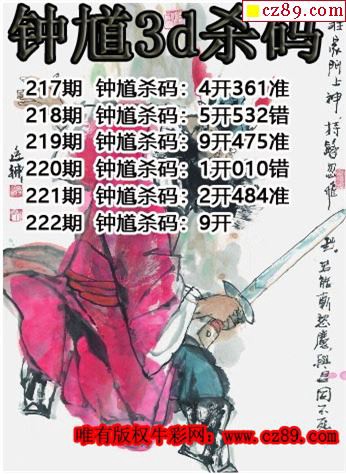 cz89.com
钟馗3d杀码
217期 钟馗杀码：4开361准
218期 钟馗杀码：5开532错
219期 钟馗杀码：9开475准
220期 钟馗杀码：1开010错
221期 钟馗杀码：2开484准
222期 钟馗杀码：9开
唯有版权牛彩网：www.cz89.com